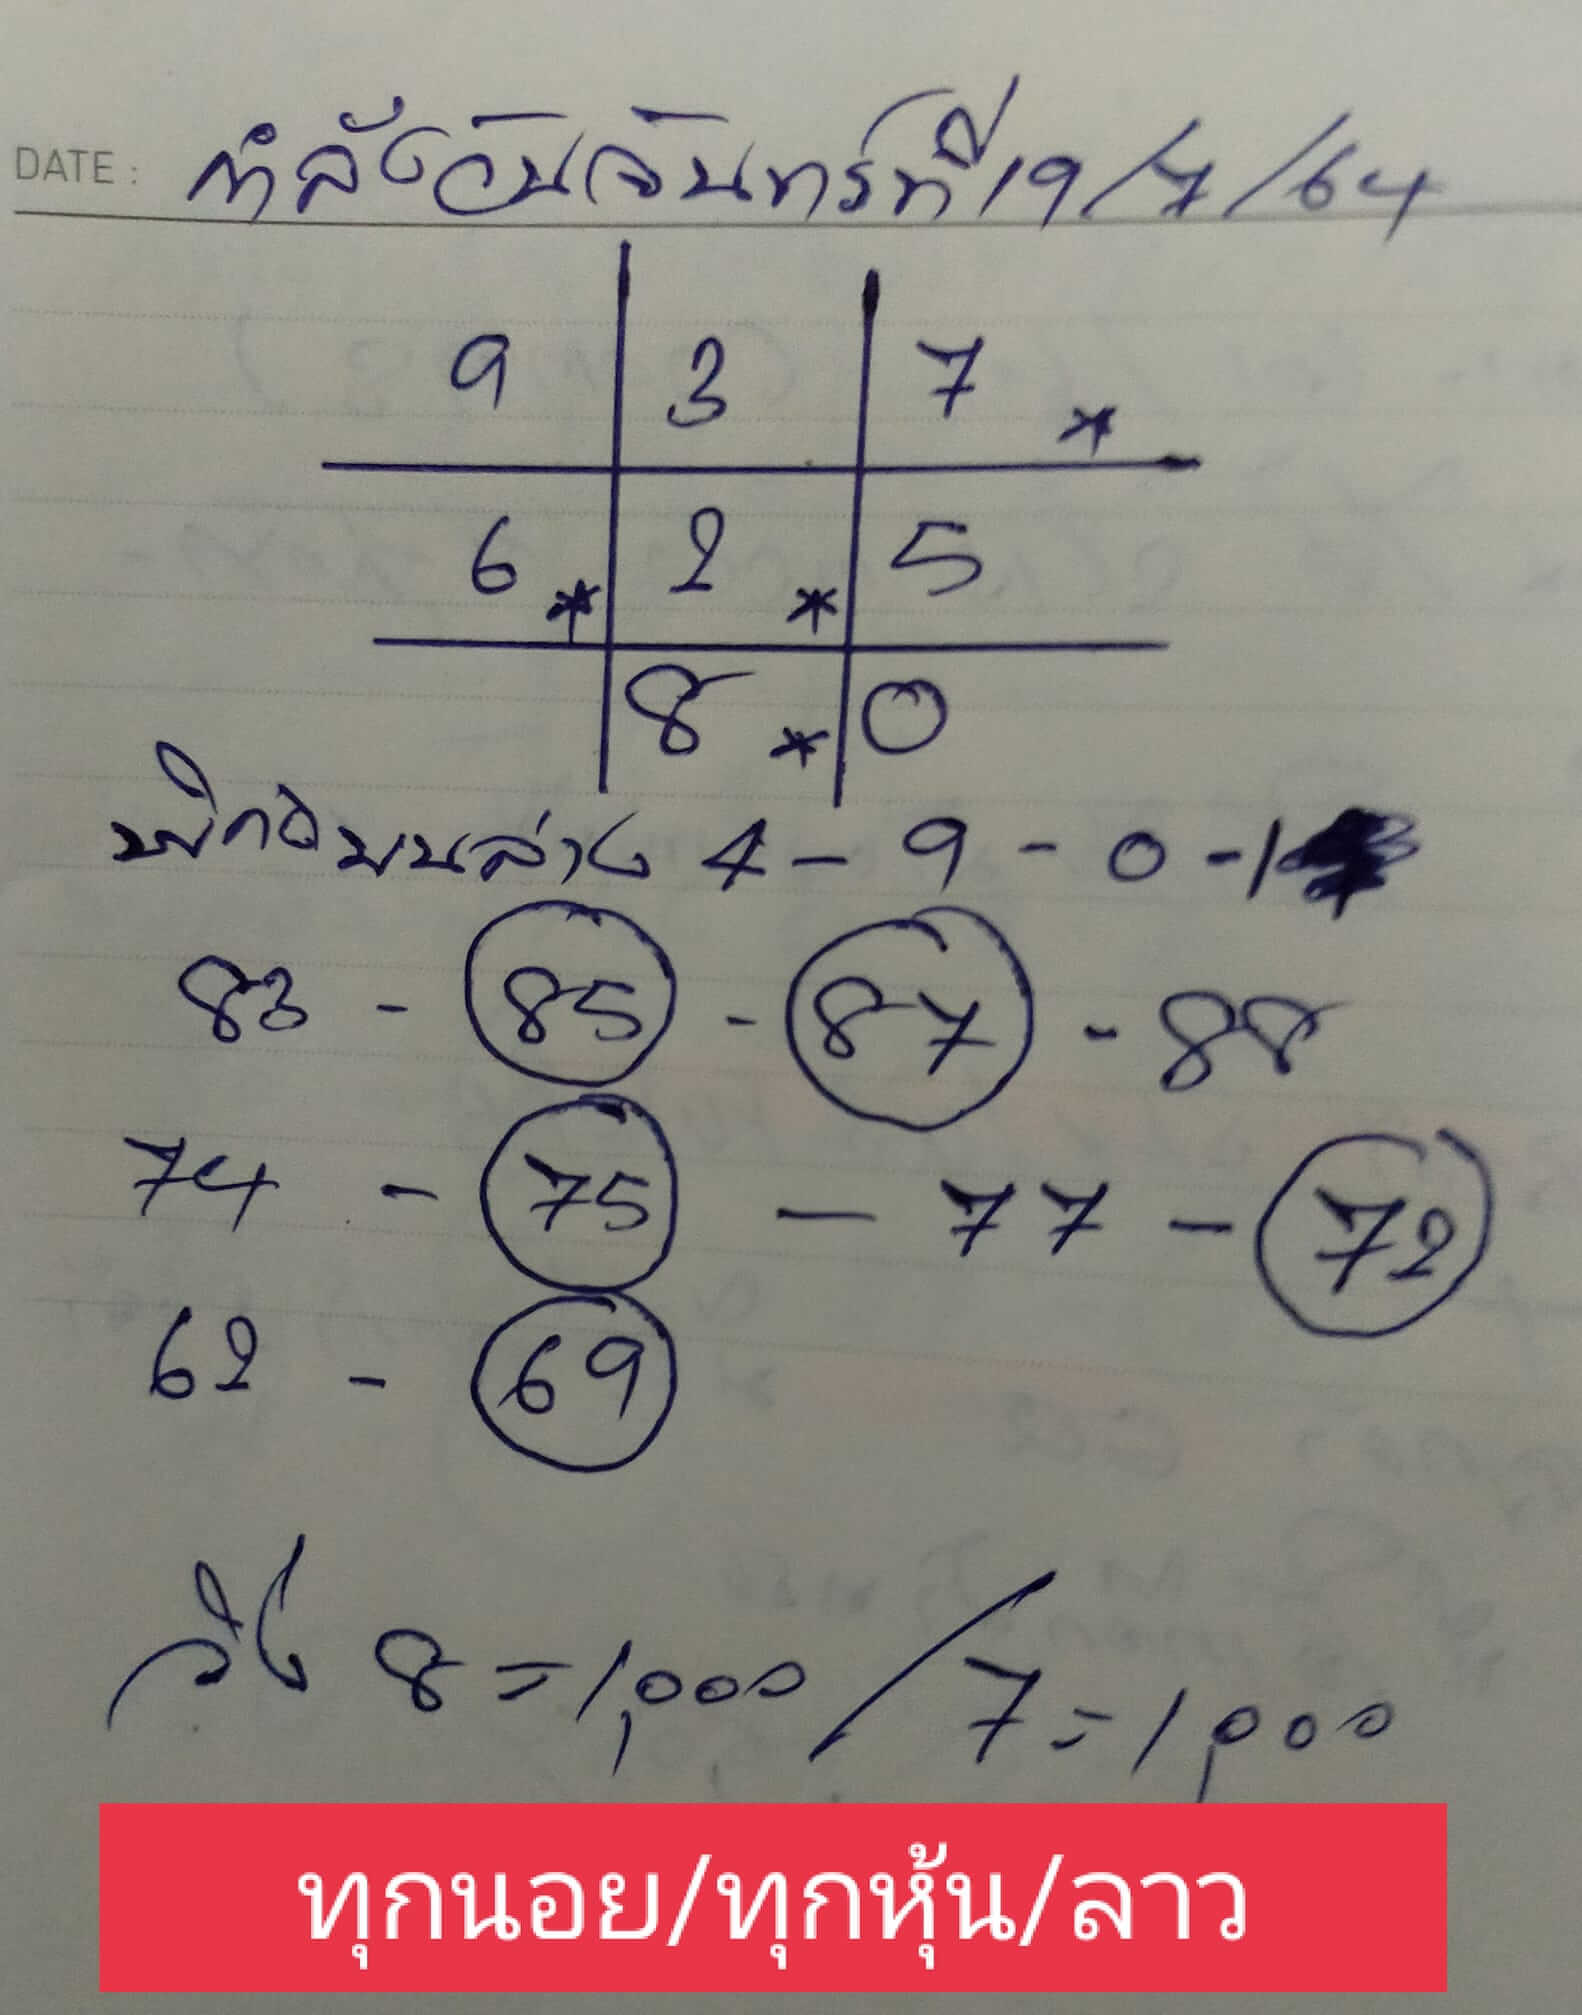 DATE : กำลังวันจันทร์ที่ 19/7/64
9 3 7 *
6 * 2 * 5
8 * 0
พิกัดบนล่าง 4 - 9 - 0 - 1
83 - 85 - 87 - 88
74 - 75 - 77 - 72
62 - 69
วิ่ง 8 = 1,000 / 7 = 1,000
ทุกนอย/ทุกหุ้น/ลาว